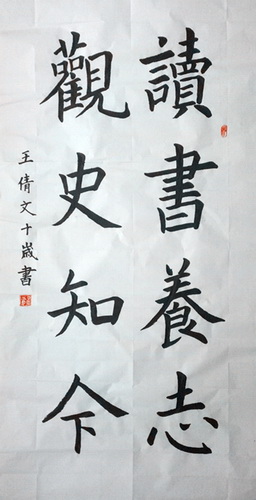 讀書養志
觀史知今
王倩文十歲書